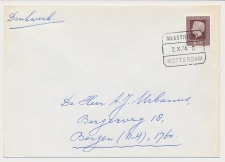 Drukwerk
MAASTRICHT
2.X.74
ROTTERDAM
De Heer A.J. Urbanus,
Bergerweg 18,
Bergen (N.H), 1760.